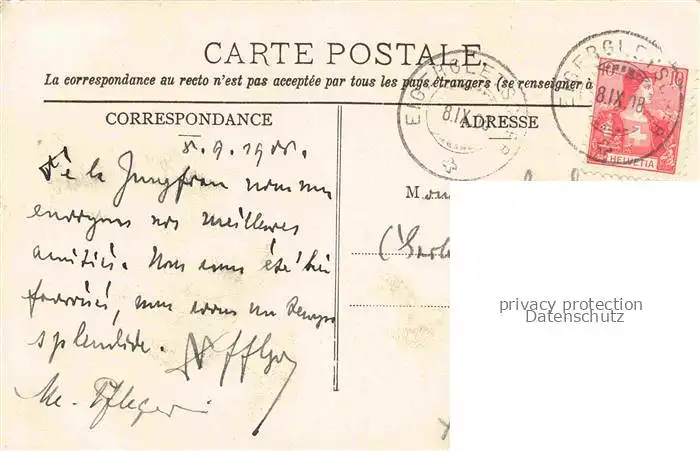 CARTE POSTALE.
La correspondance au recto n'est pas acceptée par tous les pays étrangers (se renseigner à
CORRESPONDANCE
ADRESSE
EIGERGLETSCHER
8.IX.08
EIGERGLETSCHER
8.IX.08
10
HELVETIA
8.9.1908.
De la Jungfrau nous vous
envoyons nos meilleures
amitiés. Nous avons été bien
favorisés, nous avons un temps
splendide.
Me. Pfleger
M
privacy protection
Datenschutz